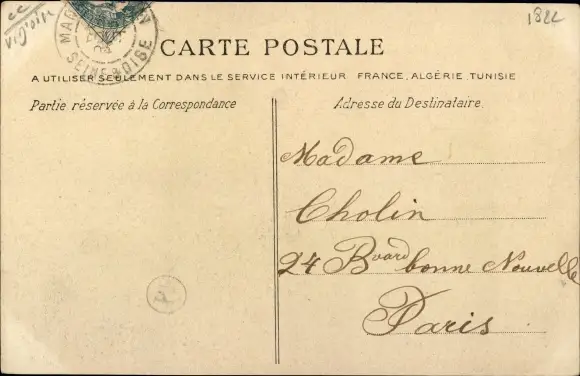 1822
CARTE POSTALE
A UTILISER SEULEMENT DANS LE SERVICE INTÉRIEUR FRANCE, ALGÉRIE, TUNISIE
Partie réservée à la Correspondance
Adresse du Destinataire.
Madame
Cholin
24 Bvard bonne Nouvelle
Paris
SEINE & OISE
P